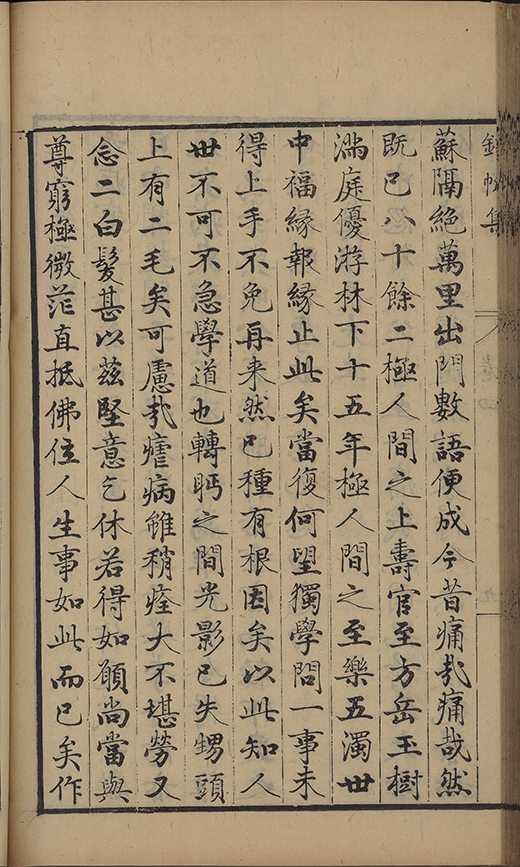 錦帆集
蘇隔絶萬里出門數語便成今昔痛哉痛哉然
既已八十餘二極人間之上壽官至方岳玉樹
滿庭優游林下十五年極人間之至樂五濁世
中福縁報縁止此矣當復何望獨學問一事未
得上手不免再来然已種有根因矣以此知人
世不可不急學道也轉眄之間光影已失甥頭
上有二毛矣可慮哉瘧病雖稍痊大不堪勞又
念二白髮甚以茲堅意乞休若得如願尚當與
尊窮極微茫直抵佛位人生事如此而已矣作